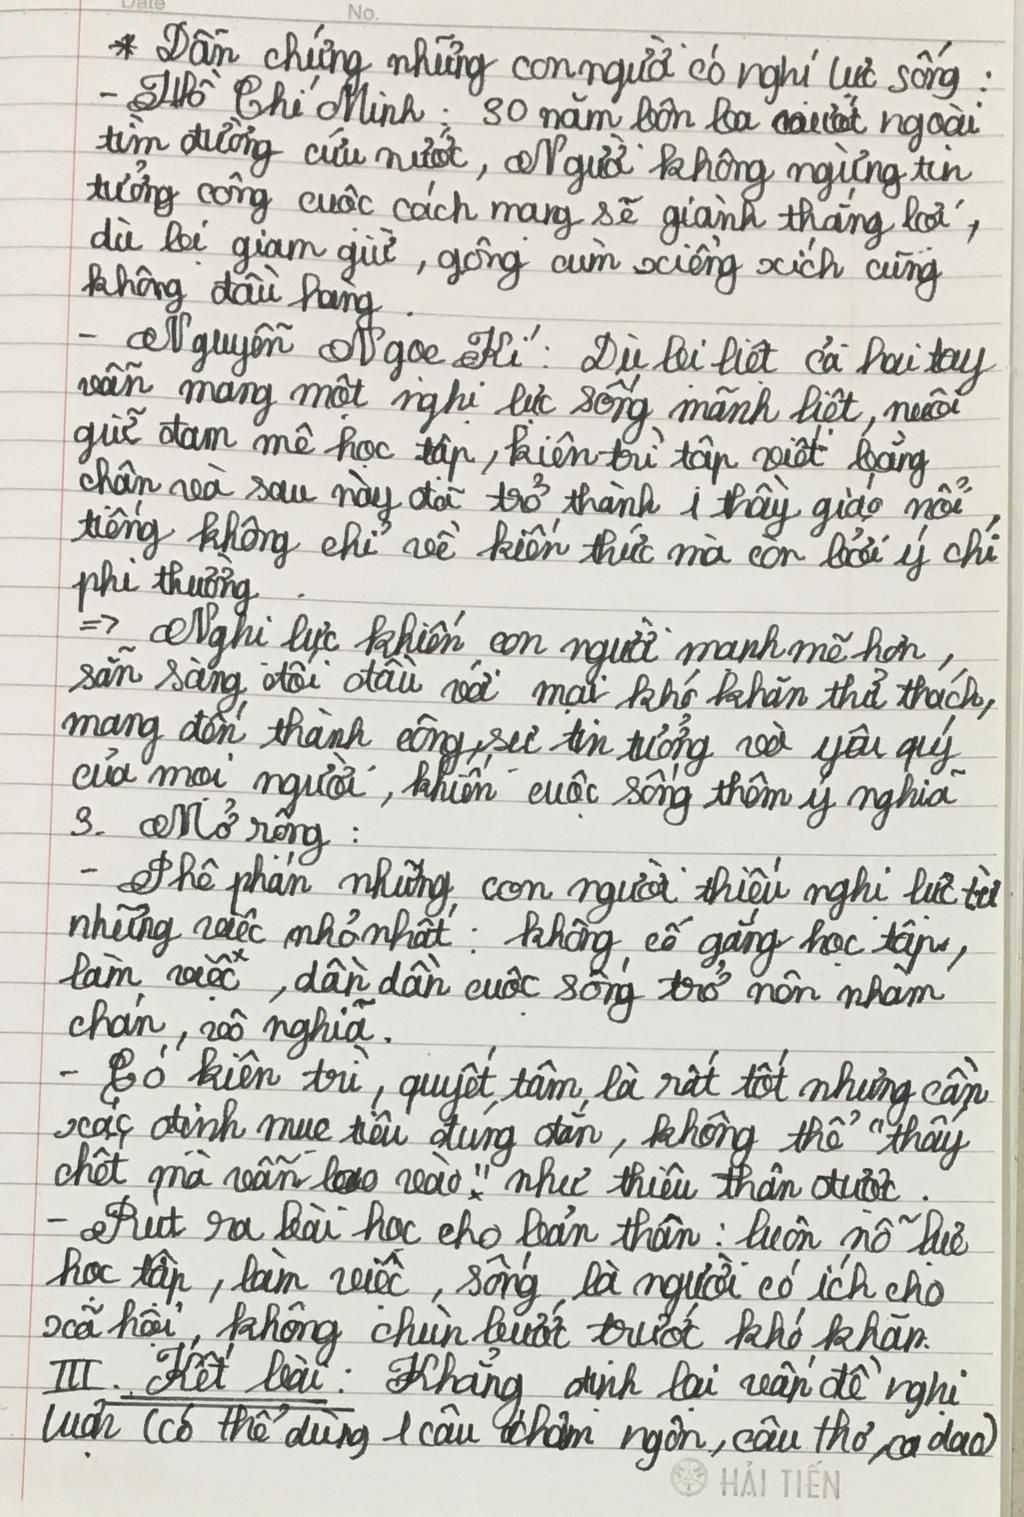 Date No.
* Dẫn chứng những con người có nghị lực sống :
- Hồ Chí Minh : 30 năm bôn ba nước ngoài
tìm đường cứu nước, Người không ngừng tin
tưởng công cuộc cách mạng sẽ giành thắng lợi,
dù bị giam giữ, gông cùm xiềng xích cũng
không đầu hàng.
- Nguyễn Ngọc Kí : Dù bị liệt cả hai tay
vẫn mang một nghị lực sống mãnh liệt, nuôi
giữ đam mê học tập, kiên trì tập viết bằng
chân và sau này đã trở thành 1 thầy giáo nổi
tiếng không chỉ về kiến thức mà còn bởi ý chí
phi thường.
=> Nghị lực khiến con người mạnh mẽ hơn,
sẵn sàng đối đầu với mọi khó khăn thử thách,
mang đến thành công, sự tin tưởng và yêu quý
của mọi người, khiến cuộc sống thêm ý nghĩa
3. Mở rộng :
- Phê phán những con người thiếu nghị lực từ
những việc nhỏ nhất : không cố gắng học tập,
làm việc, dần dần cuộc sống trở nên nhàm
chán, vô nghĩa.
- Có kiên trì, quyết tâm là rất tốt nhưng cần
xác định mục tiêu đúng đắn, không thể "thấy
chết mà vẫn lao vào" như thiêu thân được.
- Rút ra bài học cho bản thân : luôn nỗ lực
học tập, làm việc, sống là người có ích cho
xã hội, không chùn bước trước khó khăn.
III. Kết bài : Khẳng định lại vấn đề nghị
luận (có thể dùng 1 câu châm ngôn, câu thơ, ca dao)
HẢI TIẾN